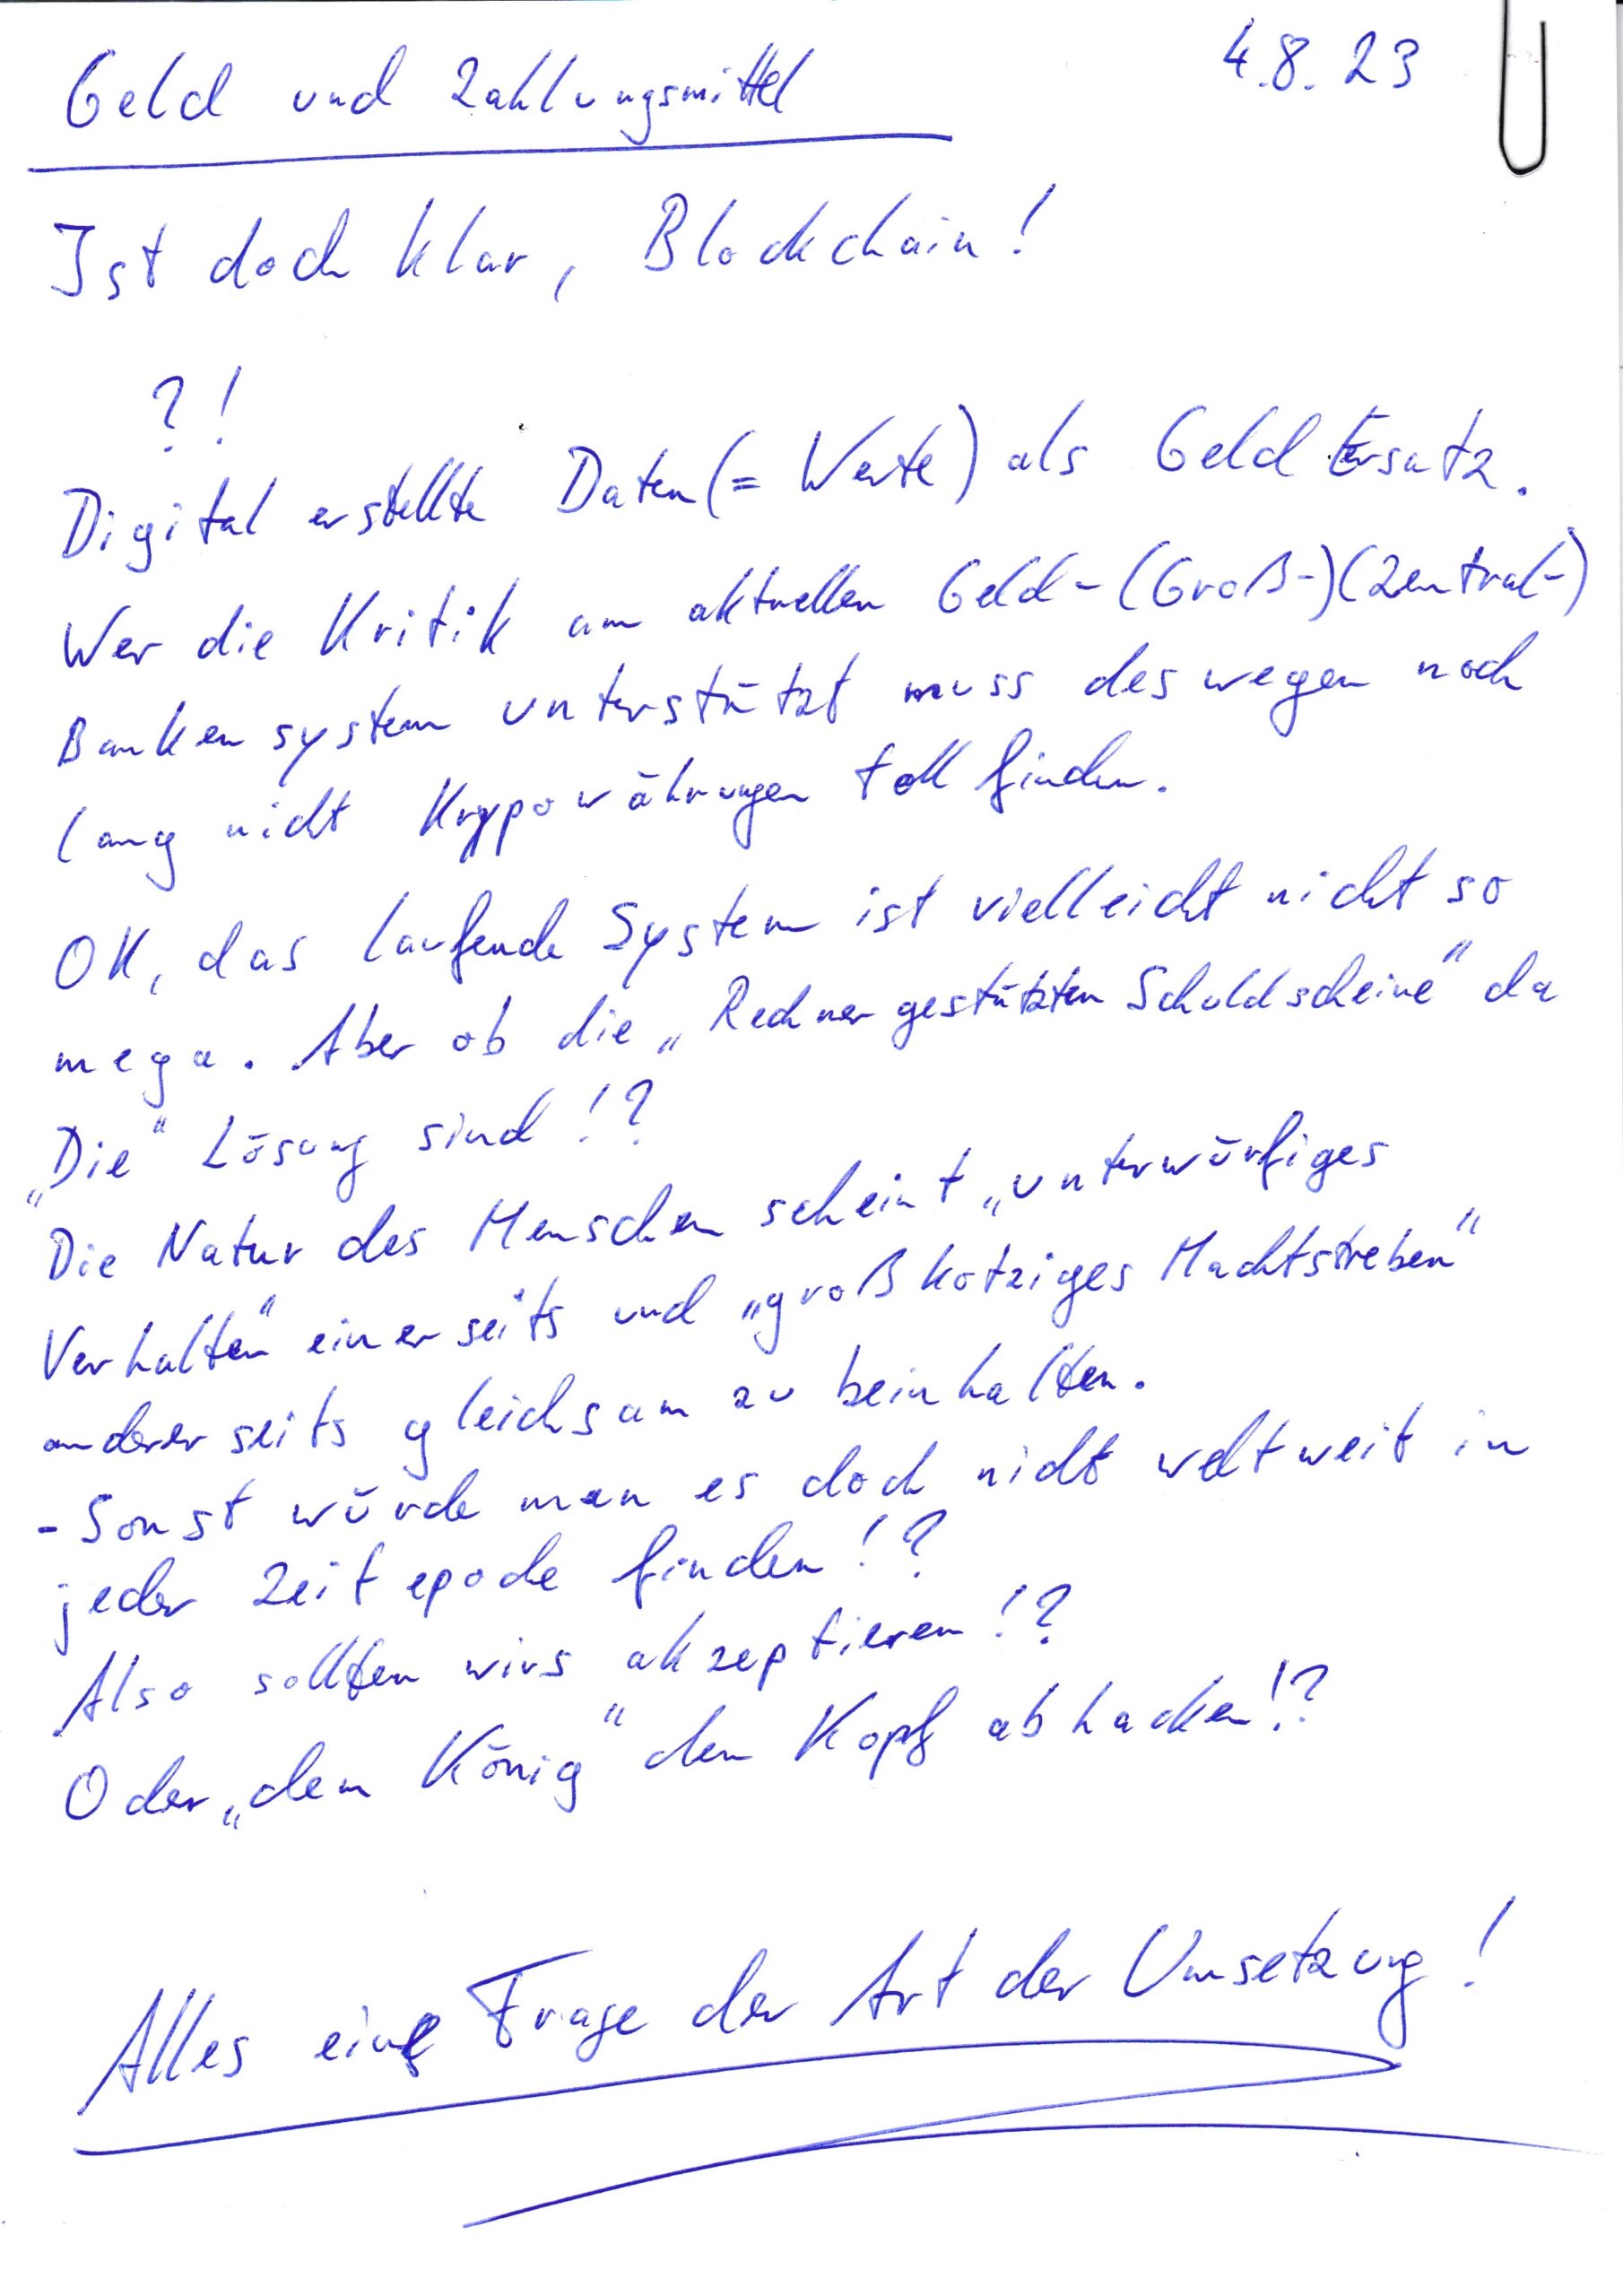 4.8.23
Geld und Zahlungsmittel
Ist doch klar, Blockchain!
?!
Digital erstellte Daten (= Werte) als Geld Ersatz.
Wer die Kritik am aktuellen Geld-(Groß-)(Zentral-)
Banken system unterstützt muss deswegen noch
lang nicht Krypowährungen toll finden.
OK, das laufende System ist vielleicht nicht so
mega. Aber ob die „Rechner gestützten Schuldscheine" da
„Die" Lösung sind!?
Die Natur des Menschen scheint „unterwürfiges
Verhalten" einerseits und „großkotziges Machtstreben"
andererseits gleichsam zu beinhalten.
- Sonst würde man es doch nicht weltweit in
jeder Zeitepoche finden!?
Also sollten wirs akzeptieren!?
Oder „dem König" den Kopf abhacken!?
Alles eine Frage der Art der Umsetzung!